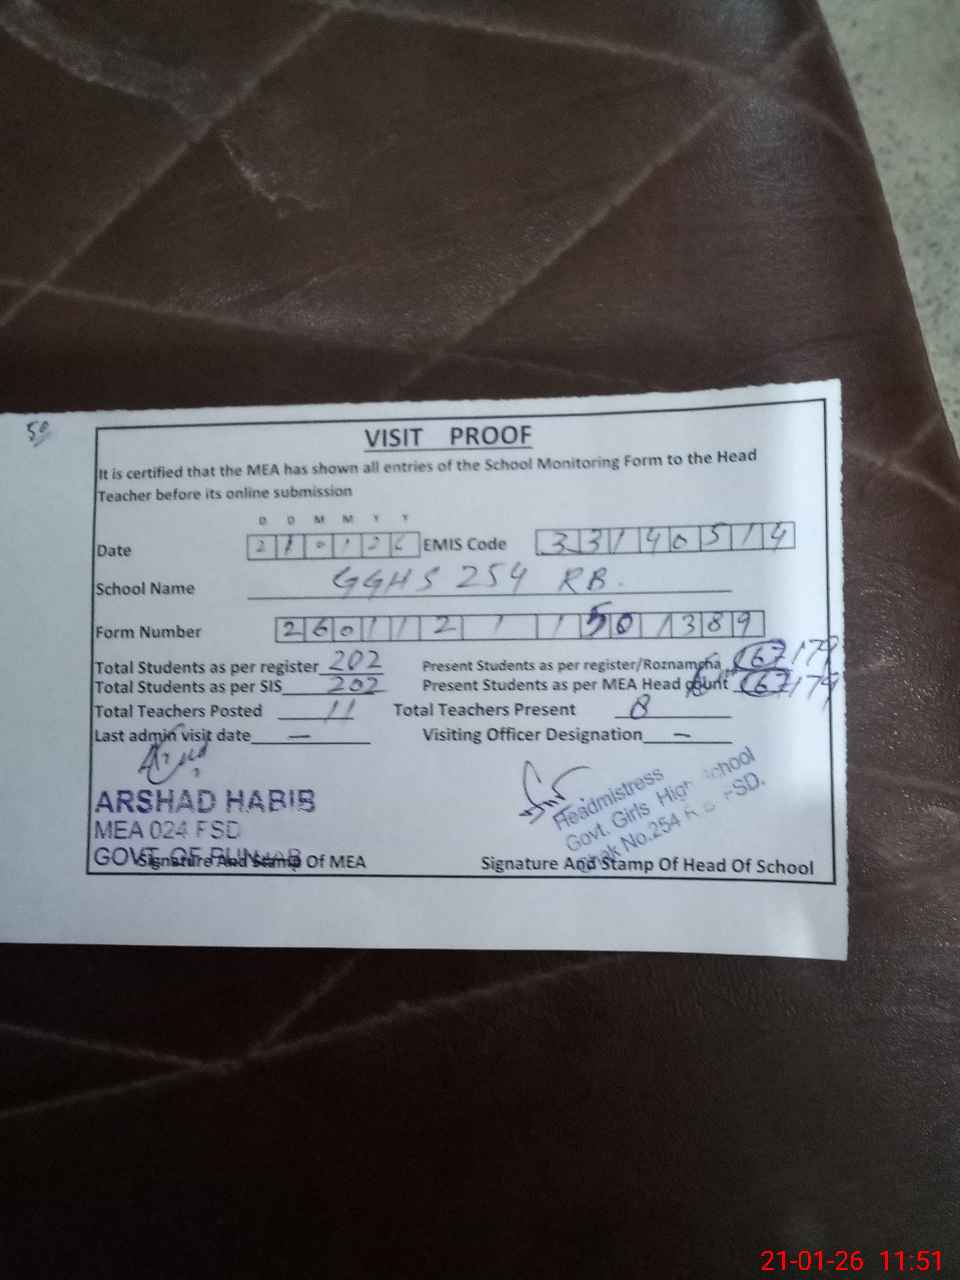 50
VISIT PROOF
It is certified that the MEA has shown all entries of the School Monitoring Form to the Head
Teacher before its online submission
D D M M Y Y
Date 210126 EMIS Code 33140514
School Name GGHS 254 RB.
Form Number 26011211501389
Total Students as per register 202 Present Students as per register/Roznamcha 167/179
Total Students as per SIS 202 Present Students as per MEA Head count 167/179
Total Teachers Posted 11 Total Teachers Present 8
Last admin visit date — Visiting Officer Designation —
ARSHAD HABIB
MEA 024 FSD
GOVT OF PUNJAB
Headmistress
Govt. Girls High School
Chak No.254 R B FSD.
Signature And Stamp Of MEA Signature And Stamp Of Head Of School
21-01-26 11:51